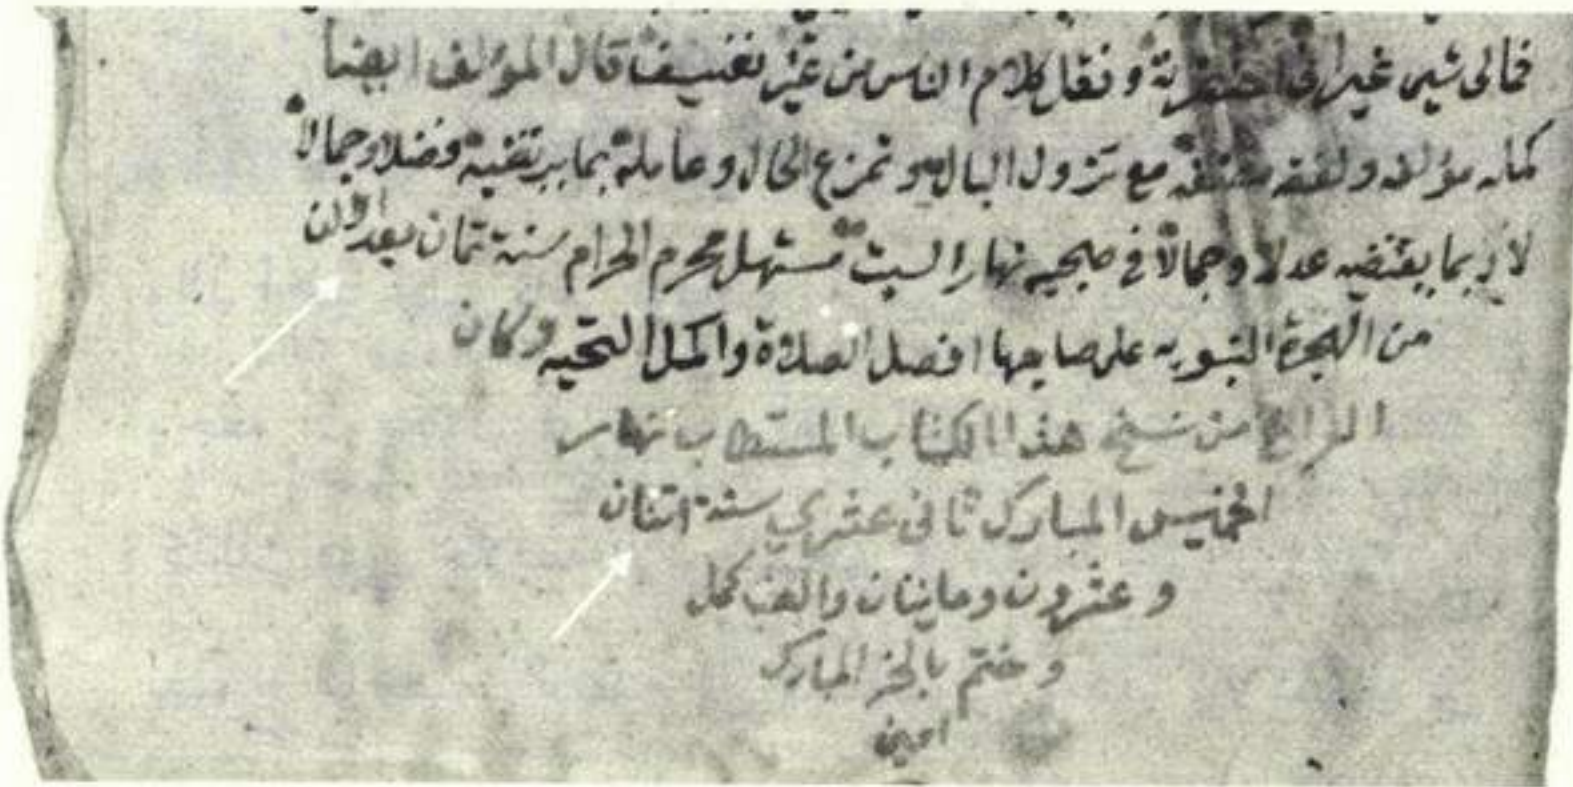 فمالى شيى غير انى ونقل كلام الناس من غير تغنيف قال المؤلف ايضا
كمله مؤلفه ولفقه مع تزول البال و تمزع الحال وعامله بما يرتضيه فضلا وجمالا
لا بما يقتضيه عدلا وجمالا في صبحيه نهار السبت مستهل محرم الحرام سنة ثمان بعد الالف
من الهجرة النبويه على صاحبها افضل الصلاة واكمل التحيه وكان
الفراغ من نسخ هذا الكتاب المستطاب نهار
الخميس المبارك ثانى عشري سنة اثنان
وعشرون ومايتان والف كمل
وختم بالخر المبارك
امين